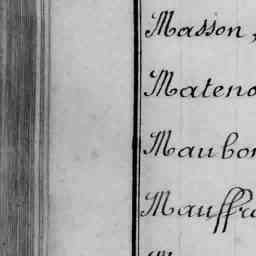 Masson,
Mateno
Maubon
Mauffra